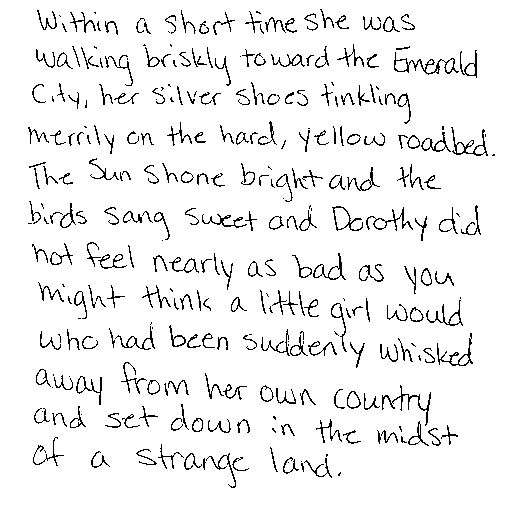 Within a short time she was
walking briskly toward the Emerald
City, her silver shoes tinkling
merrily on the hard, yellow roadbed.
The Sun Shone bright and the
birds sang sweet and Dorothy did
not feel nearly as bad as you
might think a little girl would
who had been suddenly whisked
away from her own country
and set down in the midst
of a strange land.